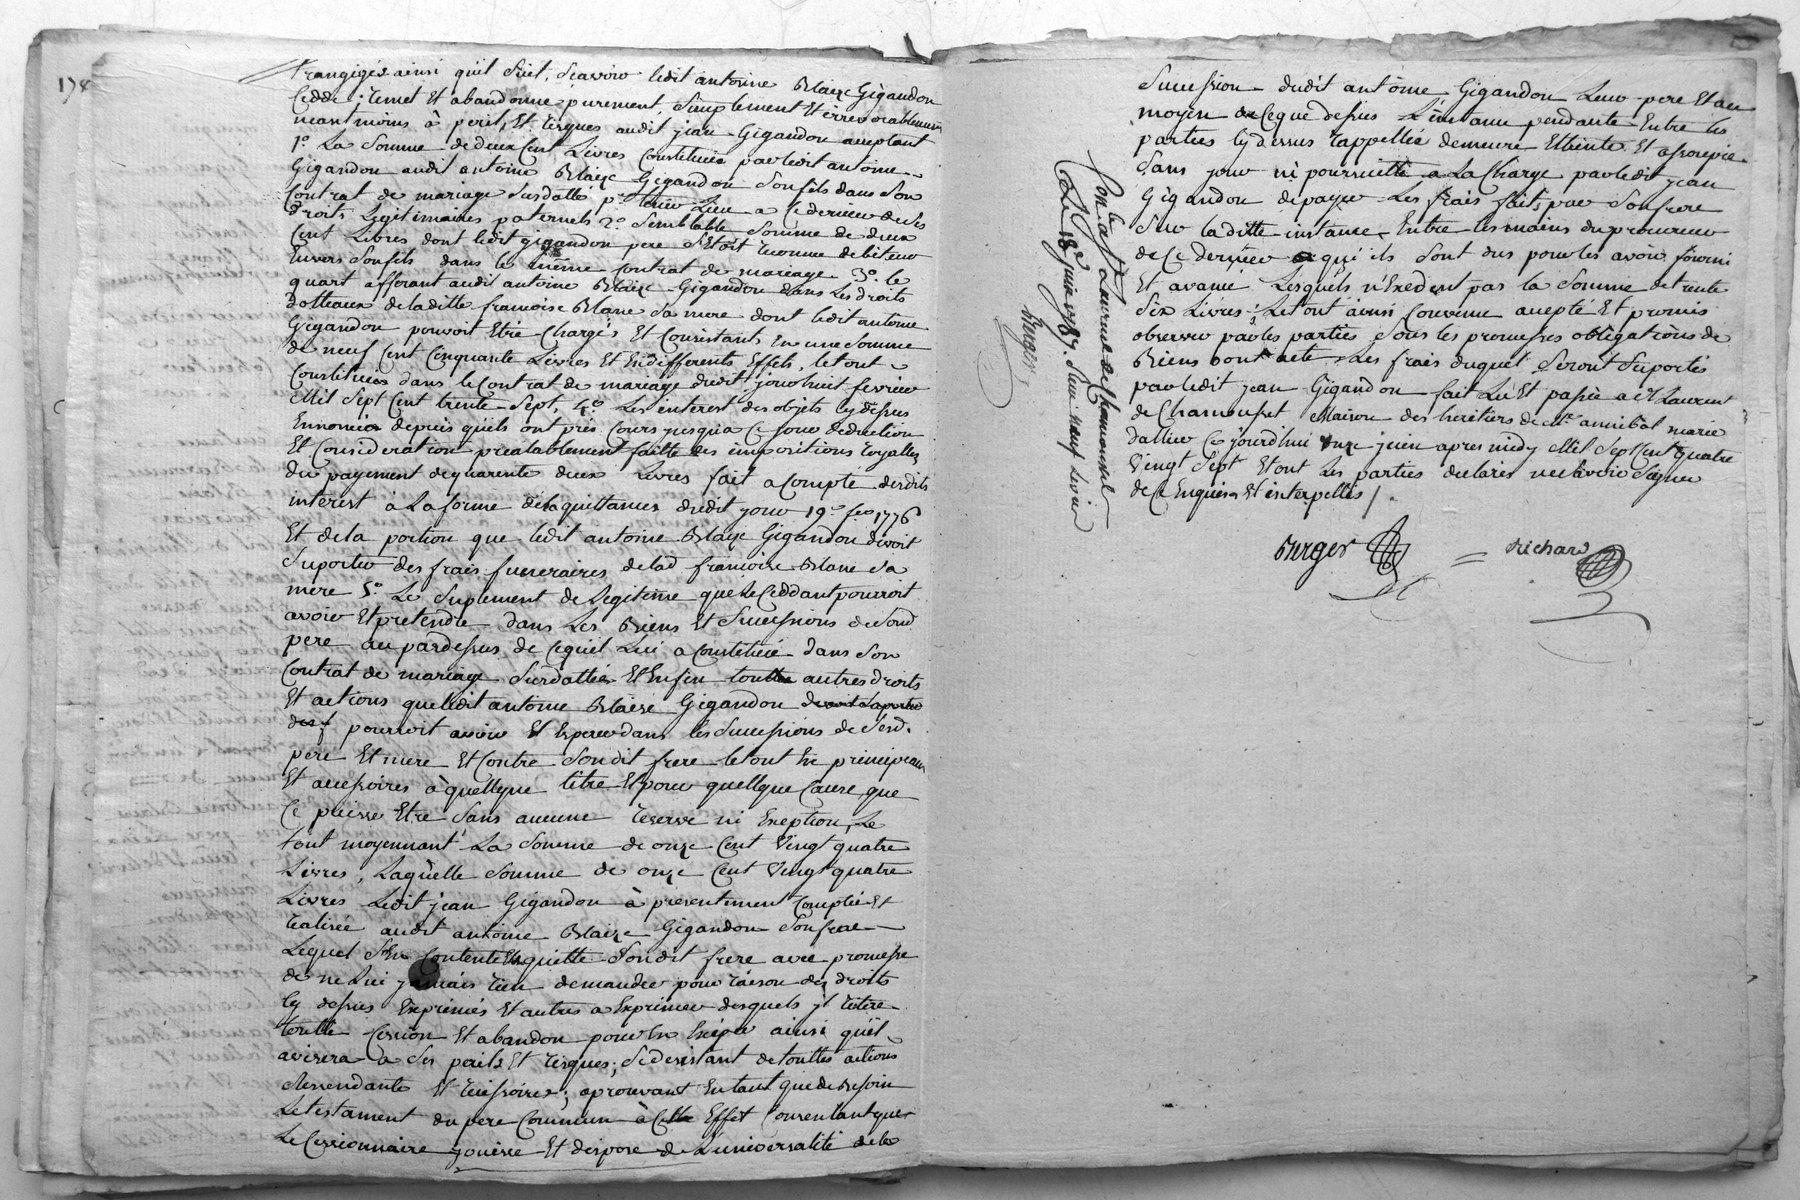 178
transigées ainsi quil suit, Scavoir ledit antoine Blaize Gigandon
Cedde, Remet Et abandonne purement Simplement Et irrevocablement
neantmoins à perils Et risques audit jean Gigandon acceptant
1o. La Somme de deux Cent Livres Constituée par ledit antoine
Gigandon audit antoine Blaize Gigandon Son fils dans Son
Contrat de mariage Susdatté pr. tenir Lieu a Ce dernier de Ses
droits Legitimaires paternels 2o. Semblable Somme de deux
Cent Livres dont ledit gigandon pere S'Etoit reconnu debiteur
Envers Son fils dans le même Contrat de mariage 3o. le
quart afferant audit antoine Blaize Gigandon dans Les droits
dotteaux de laditte françoise Blanc Sa mere dont ledit antoine
Gigandon pouvoit Etre Chargés Et Consistants En une Somme
de neuf Cent Cinquante Livres Et En differents Effets, le tout
Constitués dans le Contrat de mariage dudit jour huit fevrier
Mil Sept Cent trente Sept, 4o. Les interest des objets cy dessus
Ennoncés depuis quils ont pris Cours jusqua Ce jour deduction
Et Consideration prealablement faitte des impositions royalles
du payement de quarente deux Livres fait a Compte desdits
interest à La forme de la quittance dudit jour 19e. feo. 1776
Et de la portion que ledit antoine Blaize Gigandon devoit
Suporter des frais funeraires de lad. françoise Blanc Sa
mere 5o. Le Suplement de Legitime que le Ceddant pourroit
avoir Et pretendre dans Les Biens Et Successions de Sond.
pere au pardessus de Cequil Lui a Constitué dans Son
Contrat de mariage Susdatté Et Enfin toutte autres droits
Et actions que ledit antoine Blaize Gigandon
pourroit avoir Et Exercer dans les Successions de Sesd.
pere Et mere Et Contre Sondit frere le tout En principeaux
Et accessoires à quellque titre Et pour quellque Cause que
Ce puisse Etre Sans aucune reserve ni Exeption, Le
tout moyennant La Somme de onze Cent Vingt quatre
Livres, Laquelle Somme de onze Cent Vingt quatre
Livres Ledit jean Gigandon à presentement Comptée Et
realisée audit antoine Blaize Gigandon Son frere
Lequel S'En Contente En quitte Sondit frere avec promesse
de ne Lui jamais rien demander pour raison des droits
cy dessus Exprimés Et autres a Exprimer desquels jl reitere
toutte Cession Et abandon pour En Exiper ainsi quil
avisera a Ses perils Et risques; Se desistant de touttes actions
dessendante Et recissoires; aprouvant En tant que de Besoin
Le testament du pere Commun à Cette Effet Consentant que
Le Cessionnaire jouisse Et dispose de L'universalité de la
Succession dudit antoine Gigandon Leur pere Et au
moyen de Ceque dessus L'instance pendante Entre les
parties cy dessus rappellée demeure Etteinte Et assoupie
Sans jour ni poursuitte a La Charge par ledit jean
Gigandon de payer Les frais faits par Son frere
Sur laditte instance Entre les mains du procureur
de Ce dernier a qui ils Sont dus pour les avoir fourni
Et avancé Lesquels n'Exedent pas la Somme de trente
Six Livres; Le tout ainsi Convenu accepté Et promis
observer par les parties Sous les promesses obligations de
Biens dont acte Les frais duquel Seront Suportés
par ledit jean Gigandon fait Lu Et passée a St Laurent
de Chamousset Maison des heritiers de Me. annibal marie
dallier Ce jourdhui onze juin apres midy Mil Sept Cent quatre
Vingt Sept Et ont Les parties declarés ne Scavoir Signer
de Ce Enquises Et interpellés /.
Berger = Richard
Con.lé a St Laurent de Chamousset
Ce 18e. juin 1787.
Berger